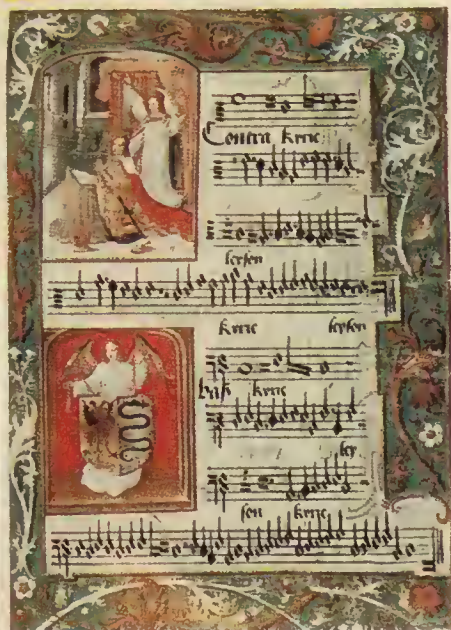 Contra kyrie
leyson
Kyrie leyson
kyrie
ley
son kyrie